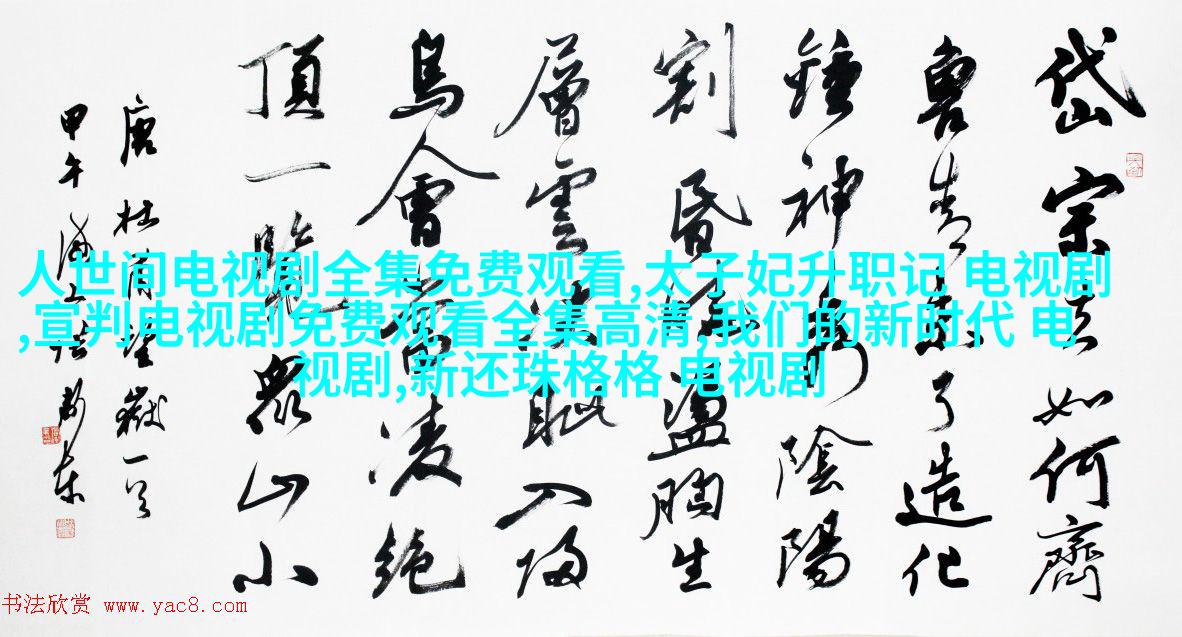 岱宗夫如何齊
魯青未了造化
鍾神秀陰陽
割昏曉盪胸生
層雲決眦入歸
鳥會當凌絕
頂一覽眾山小
唐杜甫望嶽一首
甲午
人世间电视剧全集免费观看,太子妃升职记 电视剧
,宣判电视剧免费观看全集高清,我们的新时代 电
视剧,新还珠格格 电视剧
书法欣赏 www.yac8.com